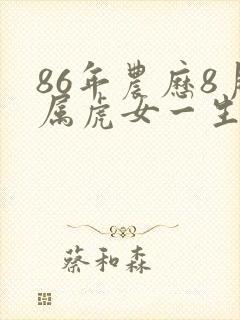 86年農歷8月
属虎女一生
蔡和森